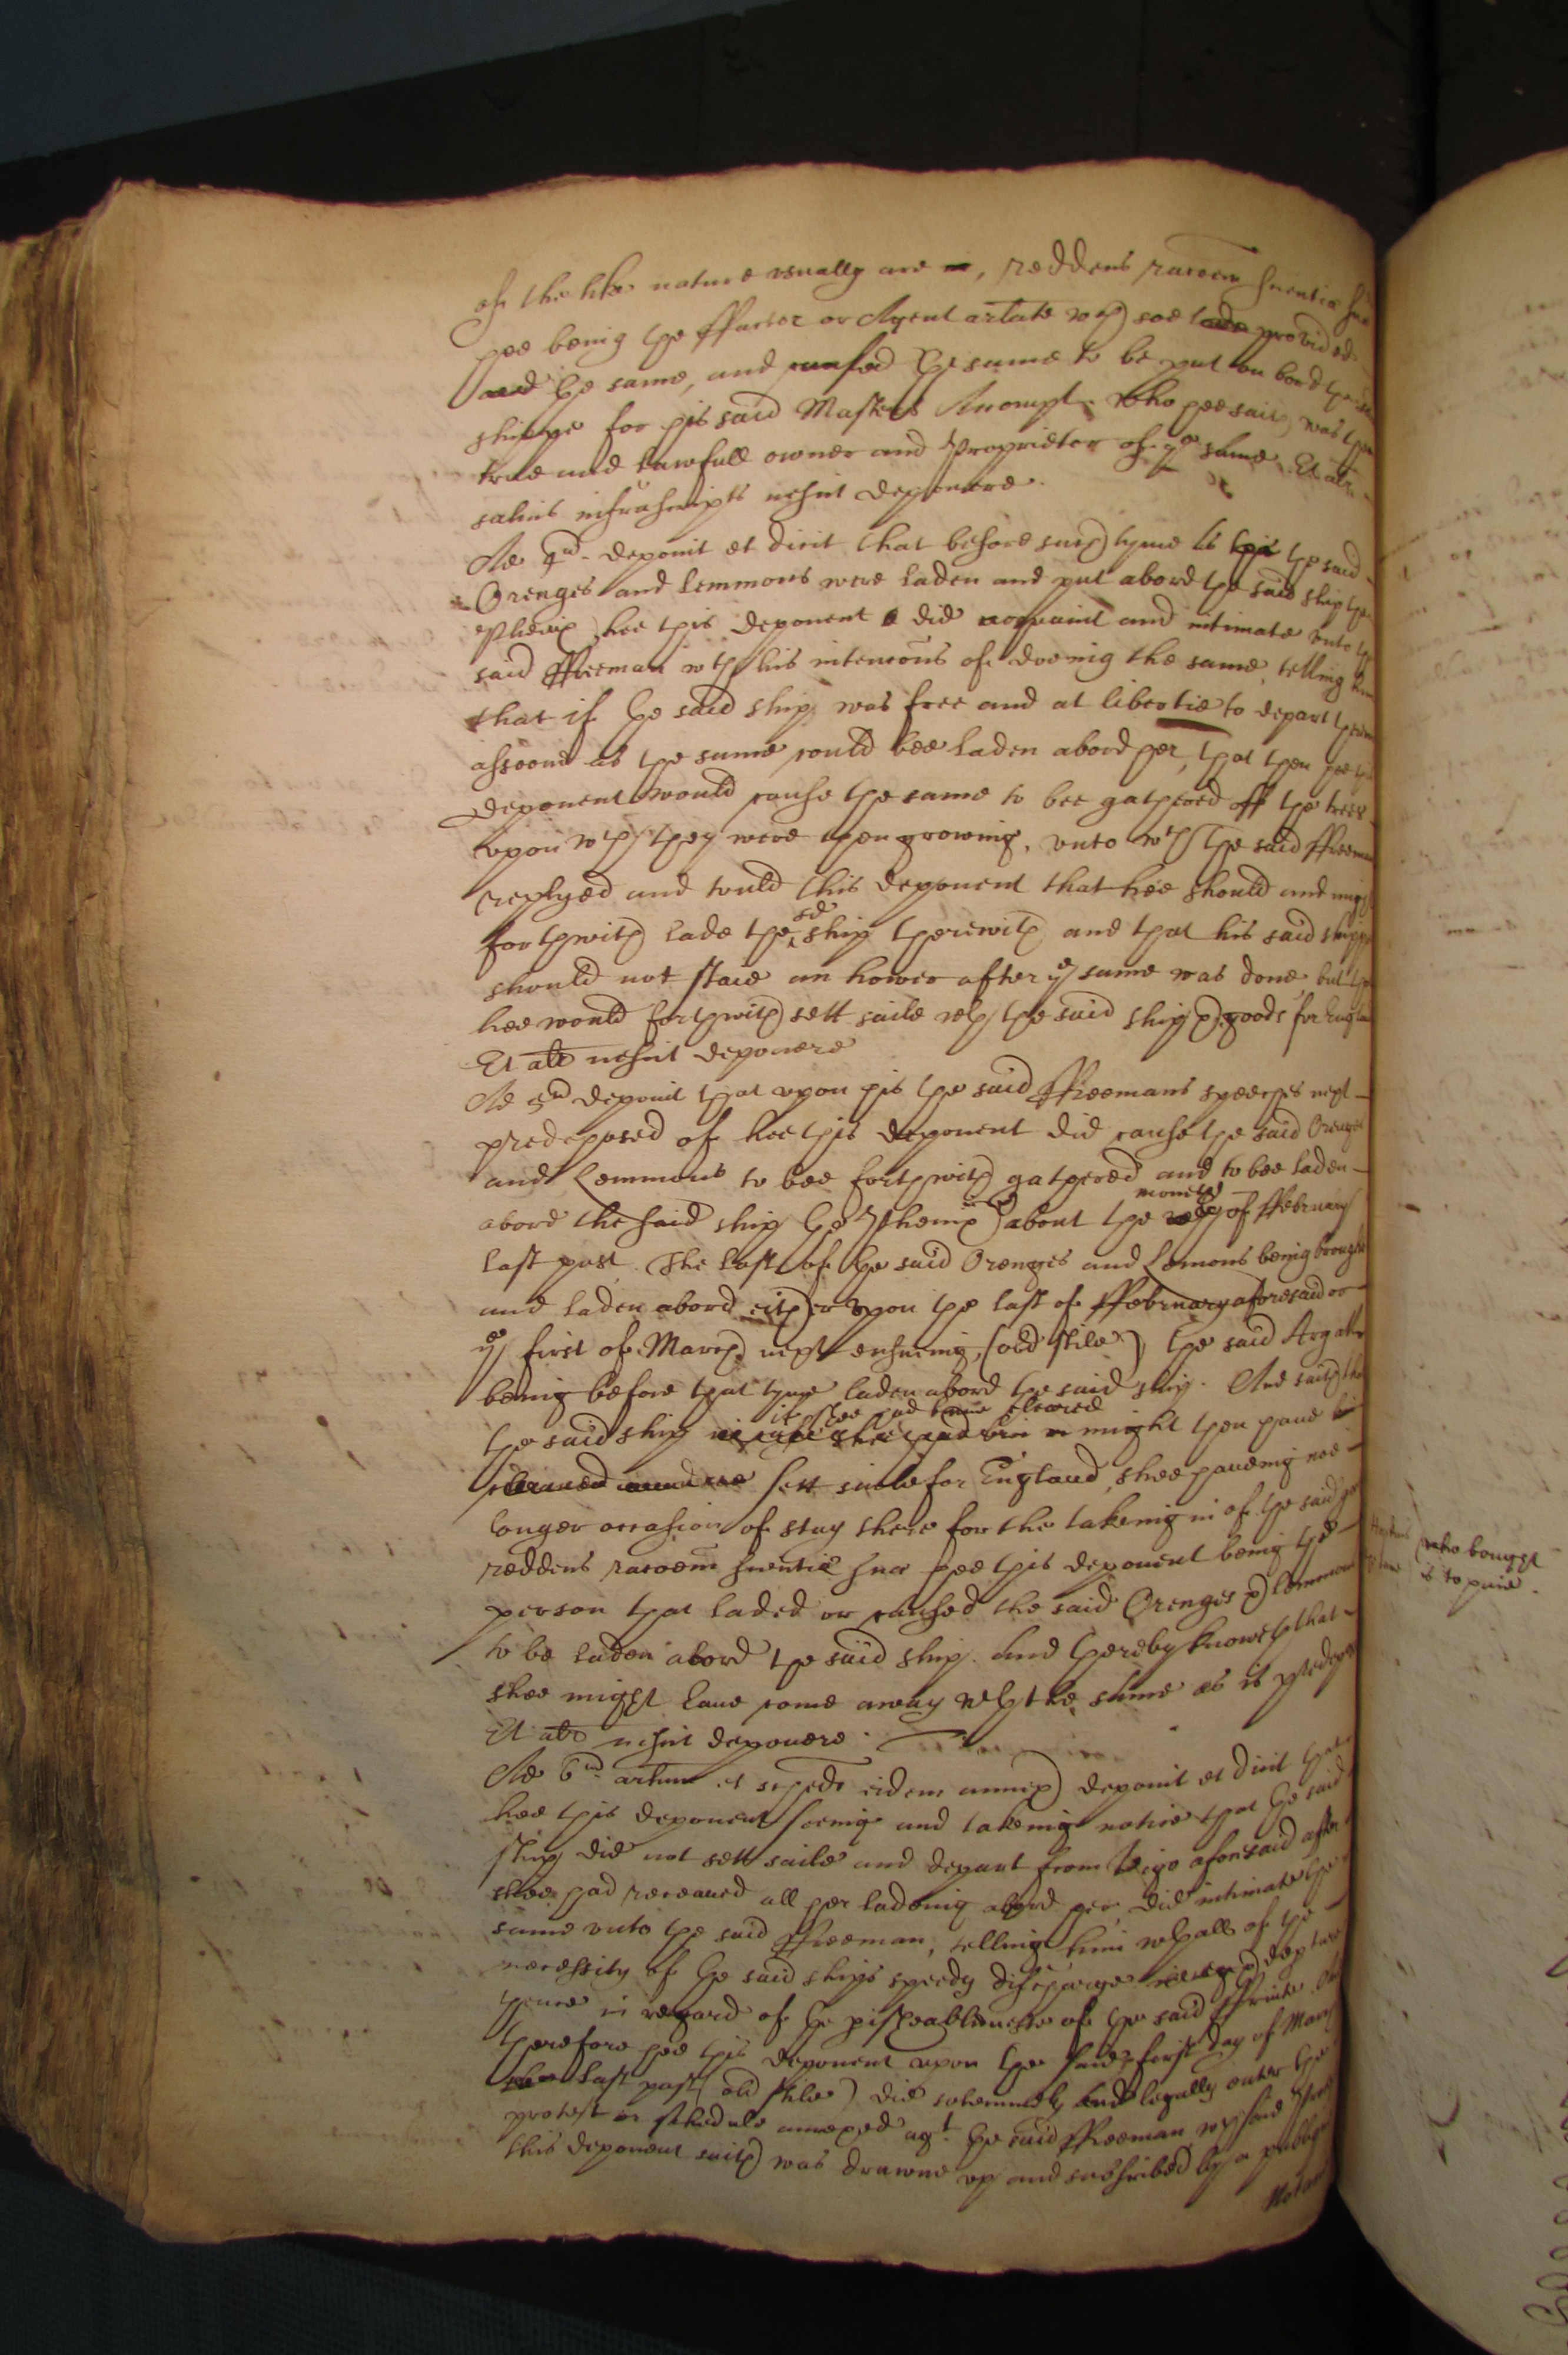 of the like nature usually are in, reddens racoem suentiæ suæ
hee being the ffactor or Agent arlate wch soe lade provided
and the same, and caused the same to be put on bord the said
shippe for his said Masters Accompt. who hee saith was the
true and lawfull owner and Proprietor of ye same. Et atr
salvis infrascripts nescit deponere.
Ad 4um deponit et dicit that before such tyme as the the said
Orenges and Lemmons were laden and put abord the said ship the
Phenix hee this deponent did acquaint and intimate unto the
said ffreeman wth his intencons of doeing the same, telling him
that if the said ship was free and at libertie to depart thence
assoone as the same could bee laden abord her, that then hee this
deponent would cause the same to bee gathered off the trees
upon wch they were then growing, unto wch the said ffreeman
replyed and tould this deponent that hee should and might
forthwith lade the sd ship therewith and that his said shippe
should not staie an hower after ye same was done, but that
hee would forthwith sett saile wth the said ship & goods for England
Et atr nescit deponere
Ad 5um deponit that upon his the said ffreemans speeches next
predeposed of hee this deponent did cause the said Orenges
and Lemmons to bee forthwith gathered and to bee laden
abord the said ship the Phenix about the moneth of ffebruary
last past. The last of the said Orenges and Lemons being brought
and laden abord either upon the last of ffebruary aforesaid or
ye first of March next ensueing, (old stile) the said Argatt
being before that tyme laden abord the said ship. And saith that
the said ship if shee had beene cleared might then have
sett saile for England, shee haveing noe
longer occasion of stay there for the takeing in of the said goods
reddens racoem suentiæ suæ hee this deponent being the
person that laded or caused the said Orenges & Lemmons
to be laden abord the said ship. And thereby knoweth that
shee might have come away wth the same as is predeposed
Et atr nescit deponere.
Ad 6um arlum et schedm eidem annex deponit et dicit that
hee this deponent seeing and takeing notice that the said
ship did not sett saile and depart from Vigo aforesaid after
shee had receaved all her ladeing abord her, did intimate the
same unto the said ffreeman, telling him wthall of the
necessity of the said ships speedy discharge & depture
thence in regard of the perishablenesse of the said ffruite. And
therefore hee this deponent upon the said first day of March
last past (old stile) did solemnely and legally enter the
protest in schedule annexed agt. the said ffreeman wch said
this deponent saith was drawne up and subscribed by a publique
Notary
who bought
& to paie.